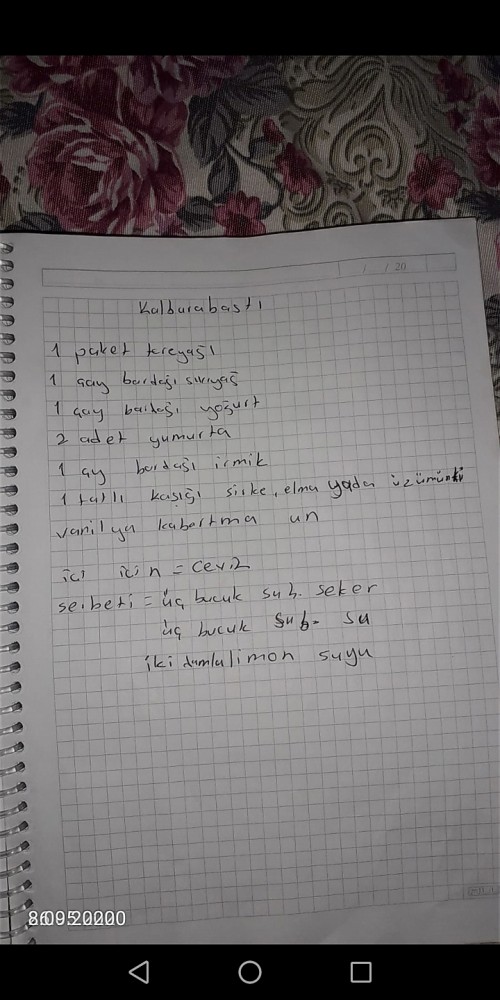 / / 20
Kalburabastı
1 paket tereyağı
1 çay bardağı sıvıyağ
1 çay bardağı yoğurt
2 adet yumurta
1 ay bardağı irmik
1 tatlı kaşığı sirke, elma yada üzümünki
vanilya kabartma un
içi için = ceviz
şerbeti = üç buçuk sub. şeker
üç buçuk sub. su
iki damla limon suyu